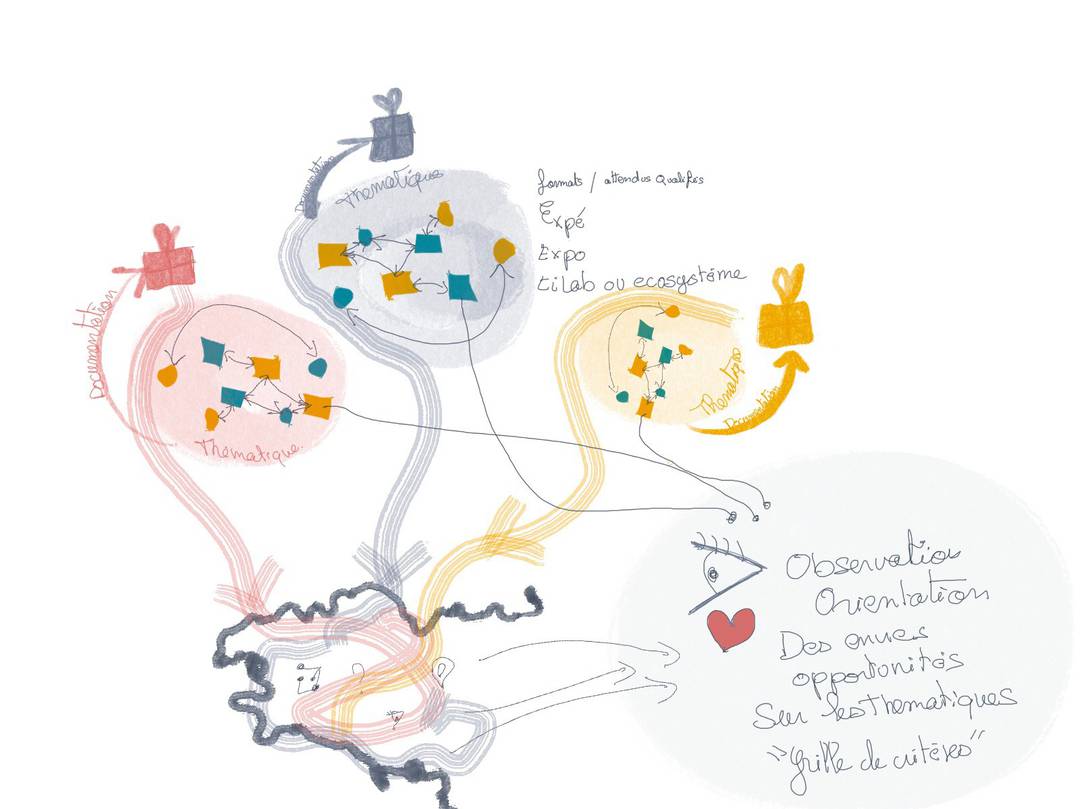 Documentation
Thematique
formats / attendus qualifiés
Expé
Expo
LiLab ou ecosystème
Documentation
Thematique
Thematique
Documentation
Observation
Orientation
Des envies
opportunités
Sur les thematiques
"grille de critères"